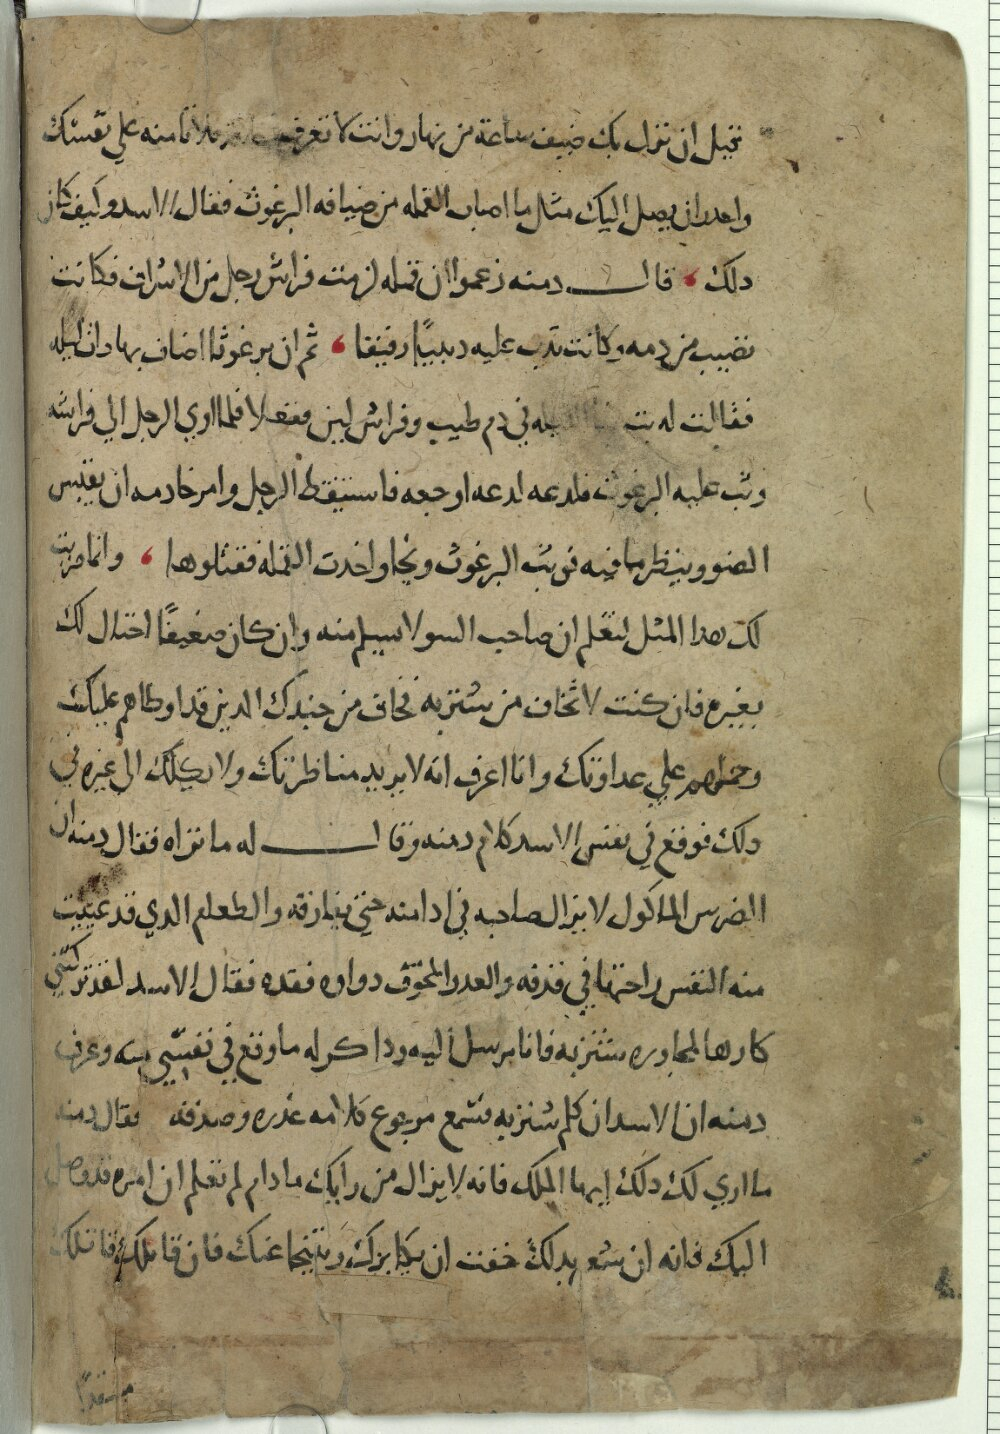 نقيل ان نزل بك ضيف ساعة من نهار وانت لا تعرف فلا تامنه علي نفسك
واحدر ان يصل اليك مثل ما اصاب القمله من ضيافه البرغوث فقال الاسد وكيف كان
دلك قال دمنه زعموا ان قمله لزمت فراش رجل من الاشراف فكانت
تصيب من دمه وكانت تدب عليه دبيبًا رفيقا ثم ان برغوثا اضاف بها دات ليله
فقالت له بت الليله في دم طيب وفراش لين ففعل فلما اوي الرجل الي فراشه
وثب عليه البرغوث فلدعه لدعه اوجعه فاستيقظ الرجل وامر خادمه ان يقتبس
الضو وينظر ما فيه فوثب البرغوث ونجا واخدت القمله فقتلوها وانما ضربت
لك هدا المثل لتعلم ان صاحب السو لا يسلم منه وان كان ضعيفًا احتال لك
بغيره فان كنت لا تخاف من شنزبه فخاف من جندك الدين قد اوطاهم عليك
وحملهم علي عداوتك وانا اعرف انه لا يريد مناظرتك ولا يكلك الى غيره في
دلك فوقع في نفس الاسد كلام دمنه وقال له ما تراه فقال دمنه ان
الضرس الماكول لا يزال صاحبه في ادا منه حتي يفارقه والطعام الدي قد عييت
منه النفس راحتها في قذفه والعدو المخوف دواوه فقده فقال الاسد لقد تركتني
كارها لمجاوره شنزبه فانا مرسل اليه وداكر له ما وقع في نفسي منه وعرف
دمنه ان الاسد ان كلم شنزبه فسمع مرجوع كلامه عذره وصدقه فقال دمنه
ما اري لك دلك ايها الملك فانه لا يزال من رايك ما دام لم تعلم ان امره قد وصل
اليك فانه ان شعر بدلك خفت ان يكابرك ويتنحا عنك فان قاتلك قاتلك